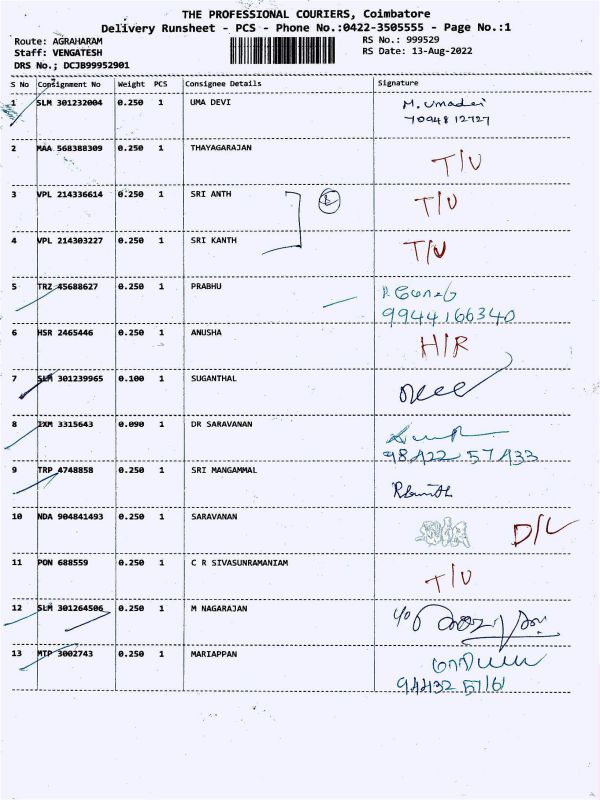 THE PROFESSIONAL COURIERS, Coimbatore
Delivery Runsheet - PCS - Phone No.:0422-3505555 - Page No.:1
Route: AGRAHARAM RS No.: 999529
Staff: VENGATESH RS Date: 13-Aug-2022
DRS No.; DCJB99952901
S No Consignment No Weight PCS Consignee Details Signature
1 SLM 301232004 0.250 1 UMA DEVI M. Umadevi
7094812727
2 MAA 568388309 0.250 1 THAYAGARAJAN T/U
3 VPL 214336614 0.250 1 SRI ANTH T/U
4 VPL 214303227 0.250 1 SRI KANTH T/U
5 TRZ 45688627 0.250 1 PRABHU
9944166340
6 HSR 2465446 0.250 1 ANUSHA H/R
7 SLM 301239965 0.100 1 SUGANTHAL
8 IXM 3315643 0.090 1 DR SARAVANAN
98422 57433
9 TRP 4748858 0.250 1 SRI MANGAMMAL
10 NDA 904841493 0.250 1 SARAVANAN D/L
11 PON 688559 0.250 1 C R SIVASUNRAMANIAM T/U
12 SLM 301264506 0.250 1 M NAGARAJAN
13 MTP 3002743 0.250 1 MARIAPPAN